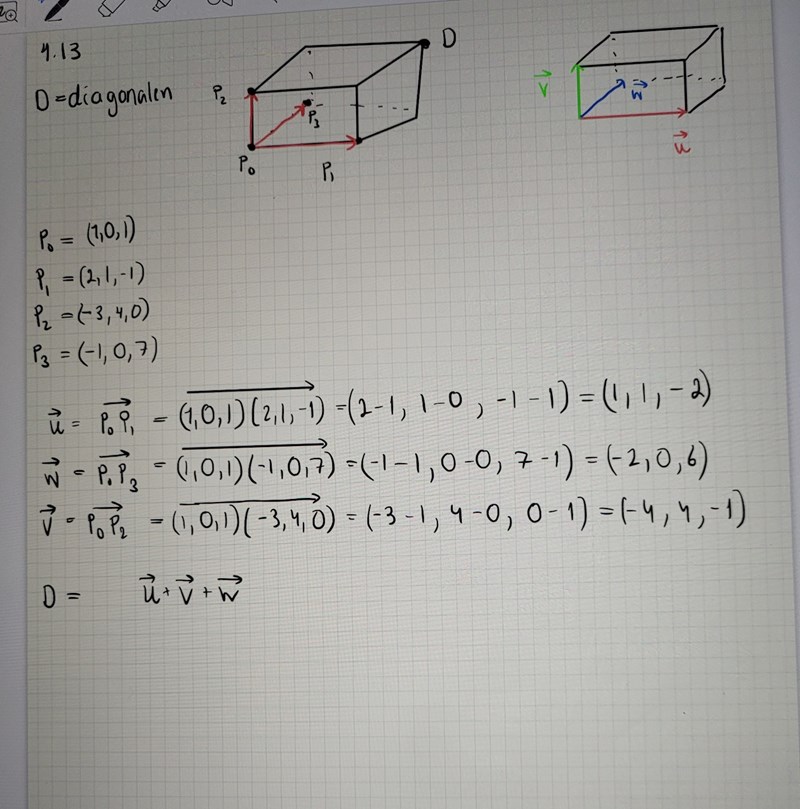 4.13
D = diagonalen
D
P₂
P₃
P₀
P₁
v⃗
w⃗
u⃗
P₀ = (1,0,1)
P₁ = (2,1,-1)
P₂ = (-3,4,0)
P₃ = (-1,0,7)
u⃗ = P₀P₁⃗ = (1,0,1)(2,1,-1)⃗ = (2-1, 1-0, -1-1) = (1, 1, -2)
w⃗ = P₀P₃⃗ = (1,0,1)(-1,0,7)⃗ = (-1-1, 0-0, 7-1) = (-2, 0, 6)
v⃗ = P₀P₂⃗ = (1,0,1)(-3,4,0)⃗ = (-3-1, 4-0, 0-1) = (-4, 4, -1)
D = u⃗ + v⃗ + w⃗